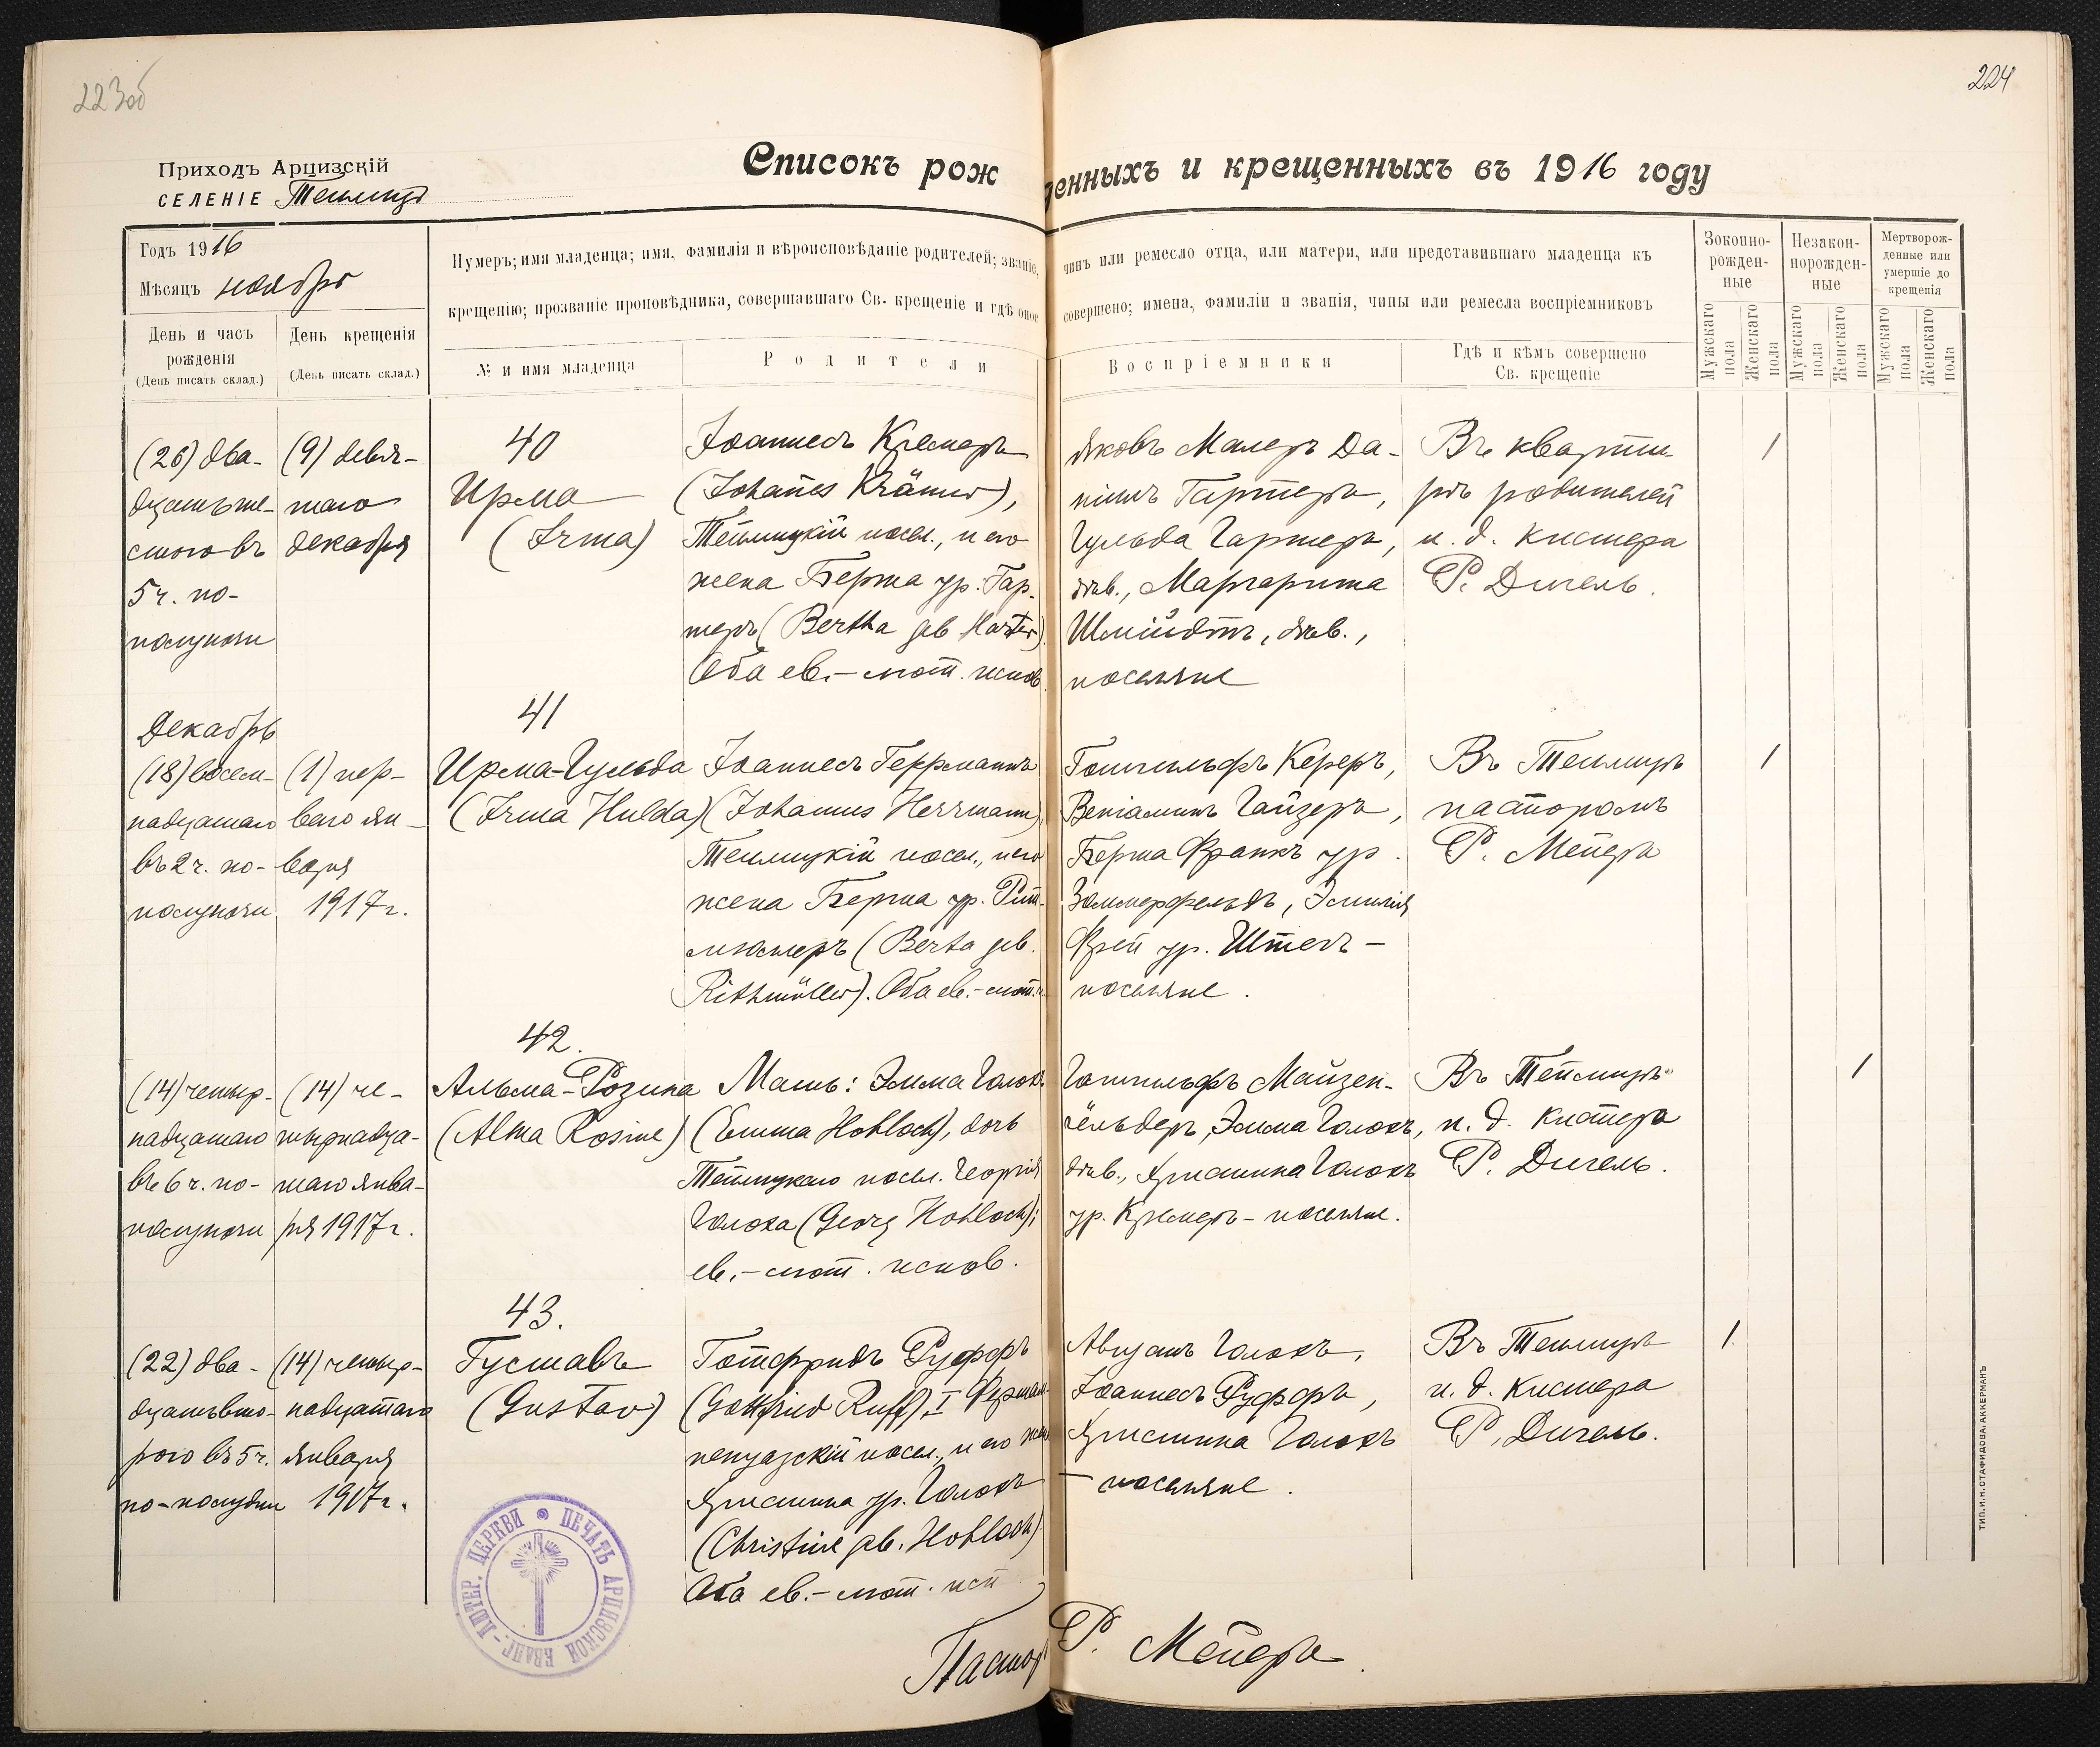 223об
224
Приходъ Арцизскій
СЕЛЕНІЕ Теплицъ
Списокъ рожденныхъ и крещенныхъ въ 1916 году
Годъ 1916
Мѣсяцъ ноябрь
День и часъ рожденія
(День писать склад.)
День крещенія
(День писать склад.)
Нумеръ; имя младенца; имя, фамилія и вѣроисповѣданіе родителей; званіе, чинъ или ремесло отца, или матери, или представившаго младенца къ
крещенію; прозваніе проповѣдника, совершавшаго Св. крещеніе и гдѣ оное совершено; имена, фамиліи и званія, чины или ремесла воспріемниковъ
№ и имя младенца
Родители
Воспріемники
Гдѣ и кѣмъ совершено
Св. крещеніе
Зоконно-
рожден-
ные
Незакон-
норожден-
ные
Мертворож-
денные или
умершіе до
крещенія
Мужскаго пола
Женскаго пола
Мужскаго пола
Женскаго пола
Мужскаго пола
Женскаго пола
(26) два-
дцатьше-
стого въ
5 ч. по-
полуночи
(9) девя-
таго
декабря
40
Ирма
(Irma)
Іоаннесъ Кремеръ
(Johañes Krämer),
Теплицкій посел., и его
жена Берта ур. Гар-
теръ (Bertha geb Harter)
Оба ев.-лют. испов.
Яковъ Малеръ, Да-
ніилъ Гартеръ,
Гульда Гартеръ,
дѣв., Маргарита
Шмидтъ, дѣв.,
поселяне
Въ кварти-
рѣ родителей
и. д. кистера
Р. Дигель.
1
Декабрь
(18) восем-
надцатаго
въ 2 ч. по-
полуночи
(1) пер-
ваго ян-
варя
1917 г.
41
Ирма-Гульда
(Irma Hulda)
Іоаннесъ Геррманнъ
(Johannes Herrmann)
Теплицкій посел., и его
жена Берта ур. Рит-
мюллеръ (Berta geb.
Rithmüller). Оба ев.-лют. и.
Готтильфъ Кереръ,
Веніаминъ Гайзеръ,
Берта Франкъ ур.
Зоммерфельдъ, Эмилія
Фрей ур. Штехъ -
поселяне.
Въ Теплицѣ
пасторомъ
Р. Мейеръ
1
(14) четыр-
надцатаго
въ 6 ч. по-
полуночи
(14) че-
тырнадца-
таго янва-
ря 1917 г.
42.
Альма-Розина
(Alma Rosine)
Мать: Эмма Голохъ
(Emma Hohloch), дочь
Теплицкаго посел. Георгія
Голоха (Georg Hohloch);
ев.-лют. испов.
Эмма Голохъ,
дѣв., Христина Голохъ
ур. Кремеръ - поселяне.
Въ Теплицѣ
и. д. кистера
Р. Дигель.
1
(22) два-
дцатьвто-
рого въ 5 ч.
по-полудни
(14) четыр-
надцатаго
января
1917 г.
43.
Густавъ
(Gustav)
Готфридъ Руффъ
(Gottfried Ruff), I Фершам-
пенуазскій посел., и его жена
Христина ур. Голохъ
(Christine geb. Hohloch)
Оба ев.-лют. исп
Августъ Голохъ,
Іоаннесъ Руффъ,
Христина Голохъ
- поселяне.
Въ Теплицѣ
и. д. кистера
Р. Дигель.
1.
ПЕЧАТЬ АРЦИЗСКОЙ ЕВАНГ.-ЛЮТЕР. ЦЕРКВИ
Пасторъ Р. Мейеръ.
ТИП. И. Н. СТАФИДОВА, АККЕРМАНЪ